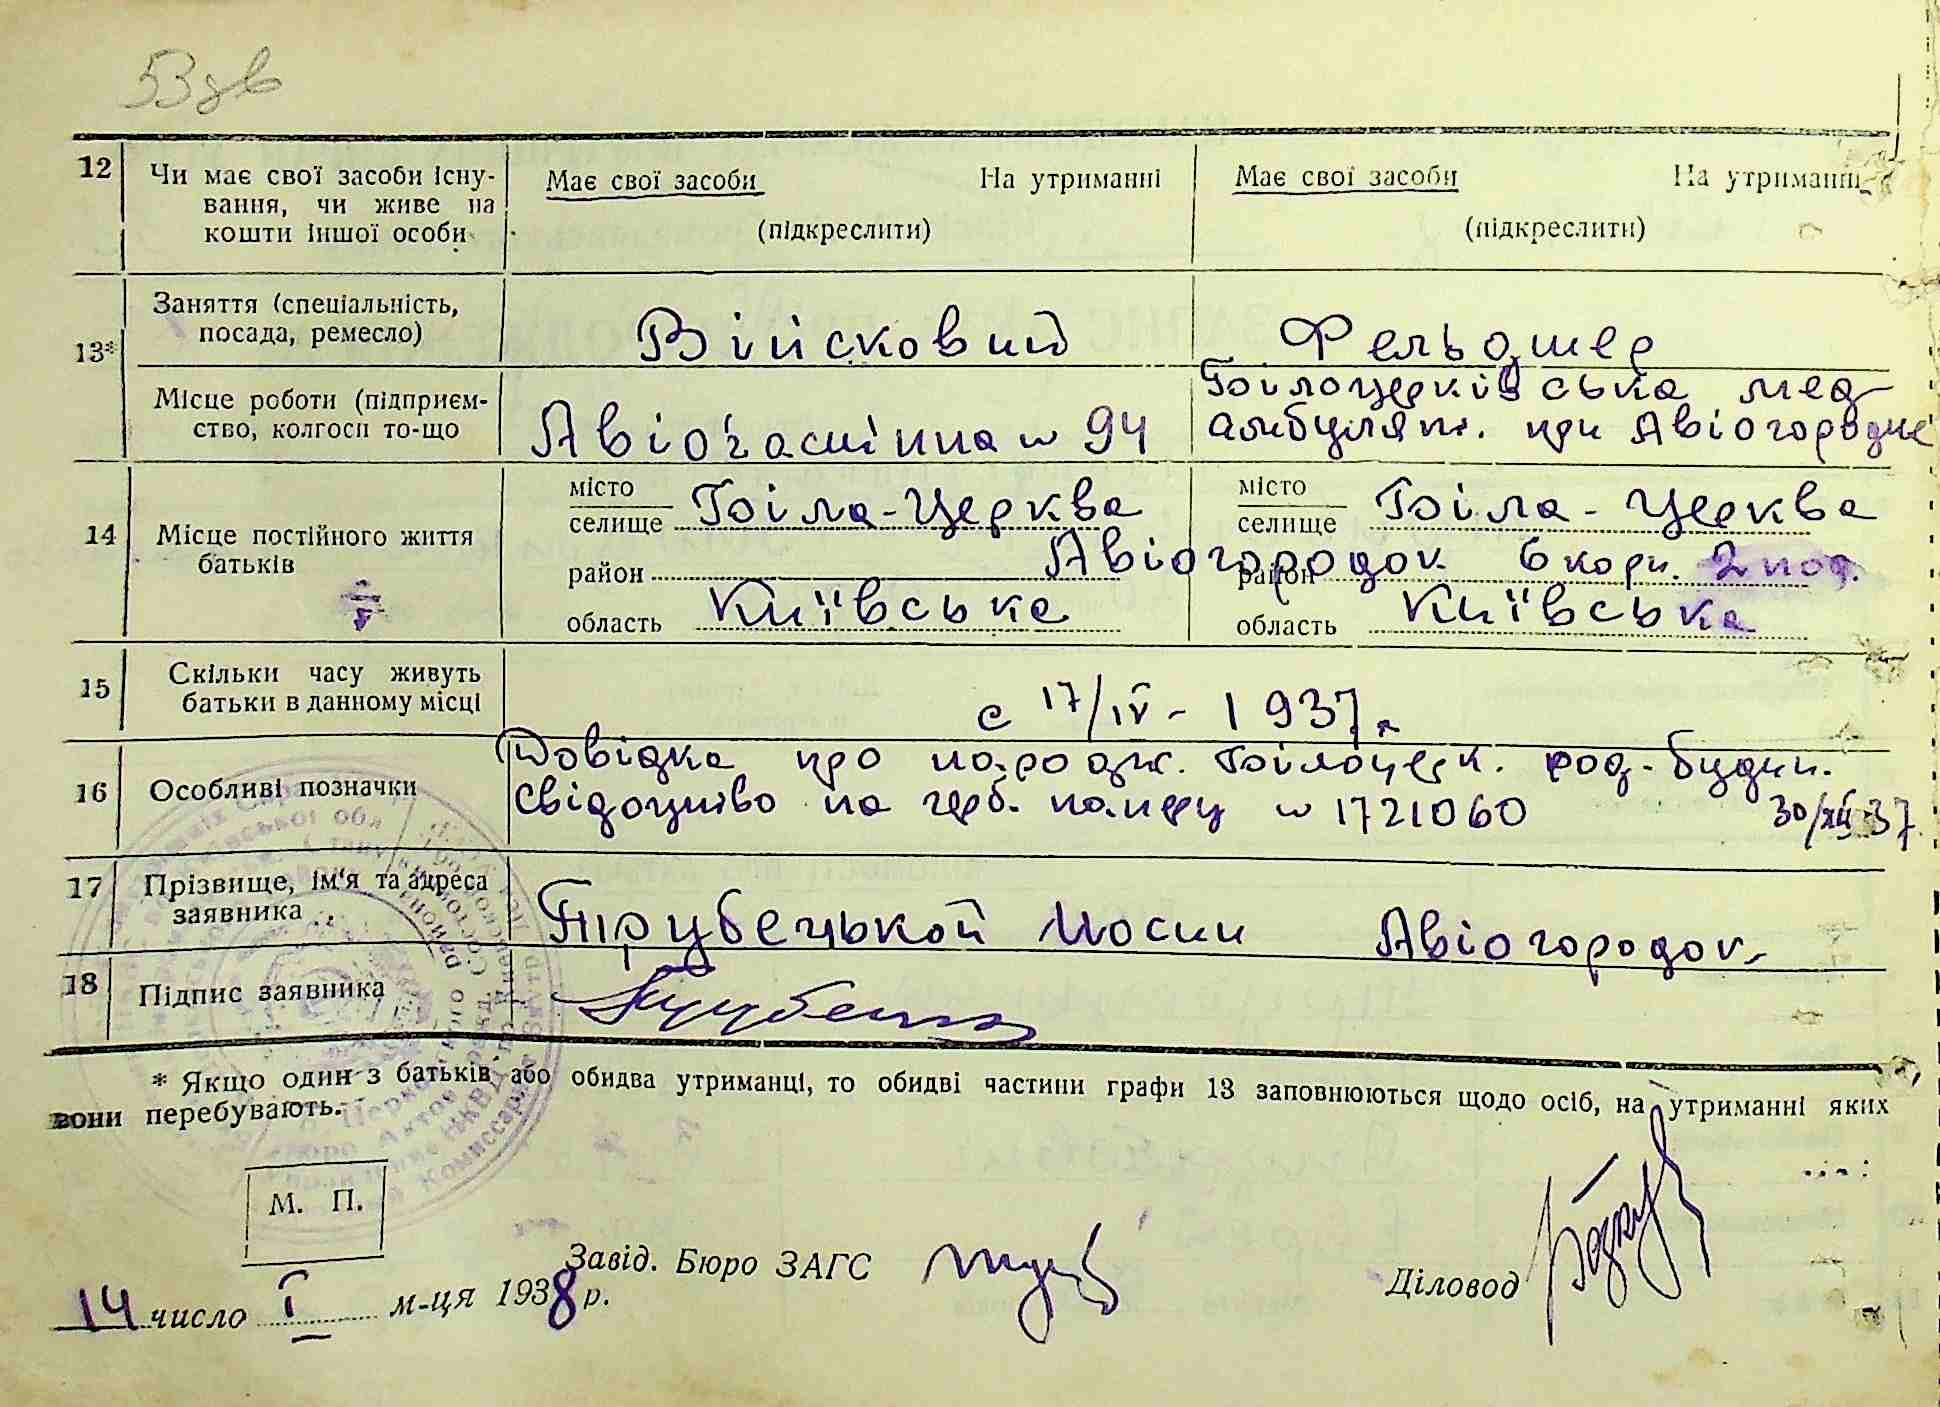 53 дв
12 Чи має свої засоби існу- Має свої засоби На утриманні Має свої засоби На утриманні
вання, чи живе на
кошти іншої особи (підкреслити) (підкреслити)
Заняття (спеціальність,
13* посада, ремесло) Війсковий Фельдшер
Місце роботи (підприєм- Білоцерківська мед
ство, колгосп то-що Авіочастина № 94 амбулят. при Авіогородке
місто Біла-Церква місто Біла-Церква
селище селище
14 Місце постійного життя
батьків район Авіогородок район 6 корп. 2 под.
область Київська область Київська
15 Скільки часу живуть
батьки в данному місці с 17/IV- 1937.
Довідка про народж. Білоцерк. род-будин.
16 Особливі позначки свідоцтво на герб. паперу № 1721060 30/XII-37
17 Прізвище, ім'я та адреса
заявника Трубецькой Йосип Авіогородок
18 Підпис заявника
* Якщо один з батьків або обидва утриманці, то обидві частини графи 13 заповнюються щодо осіб, на утриманні яких
вони перебувають.
М. П.
Завід. Бюро ЗАГС
Діловод
14 число I м-ця 1938 р.